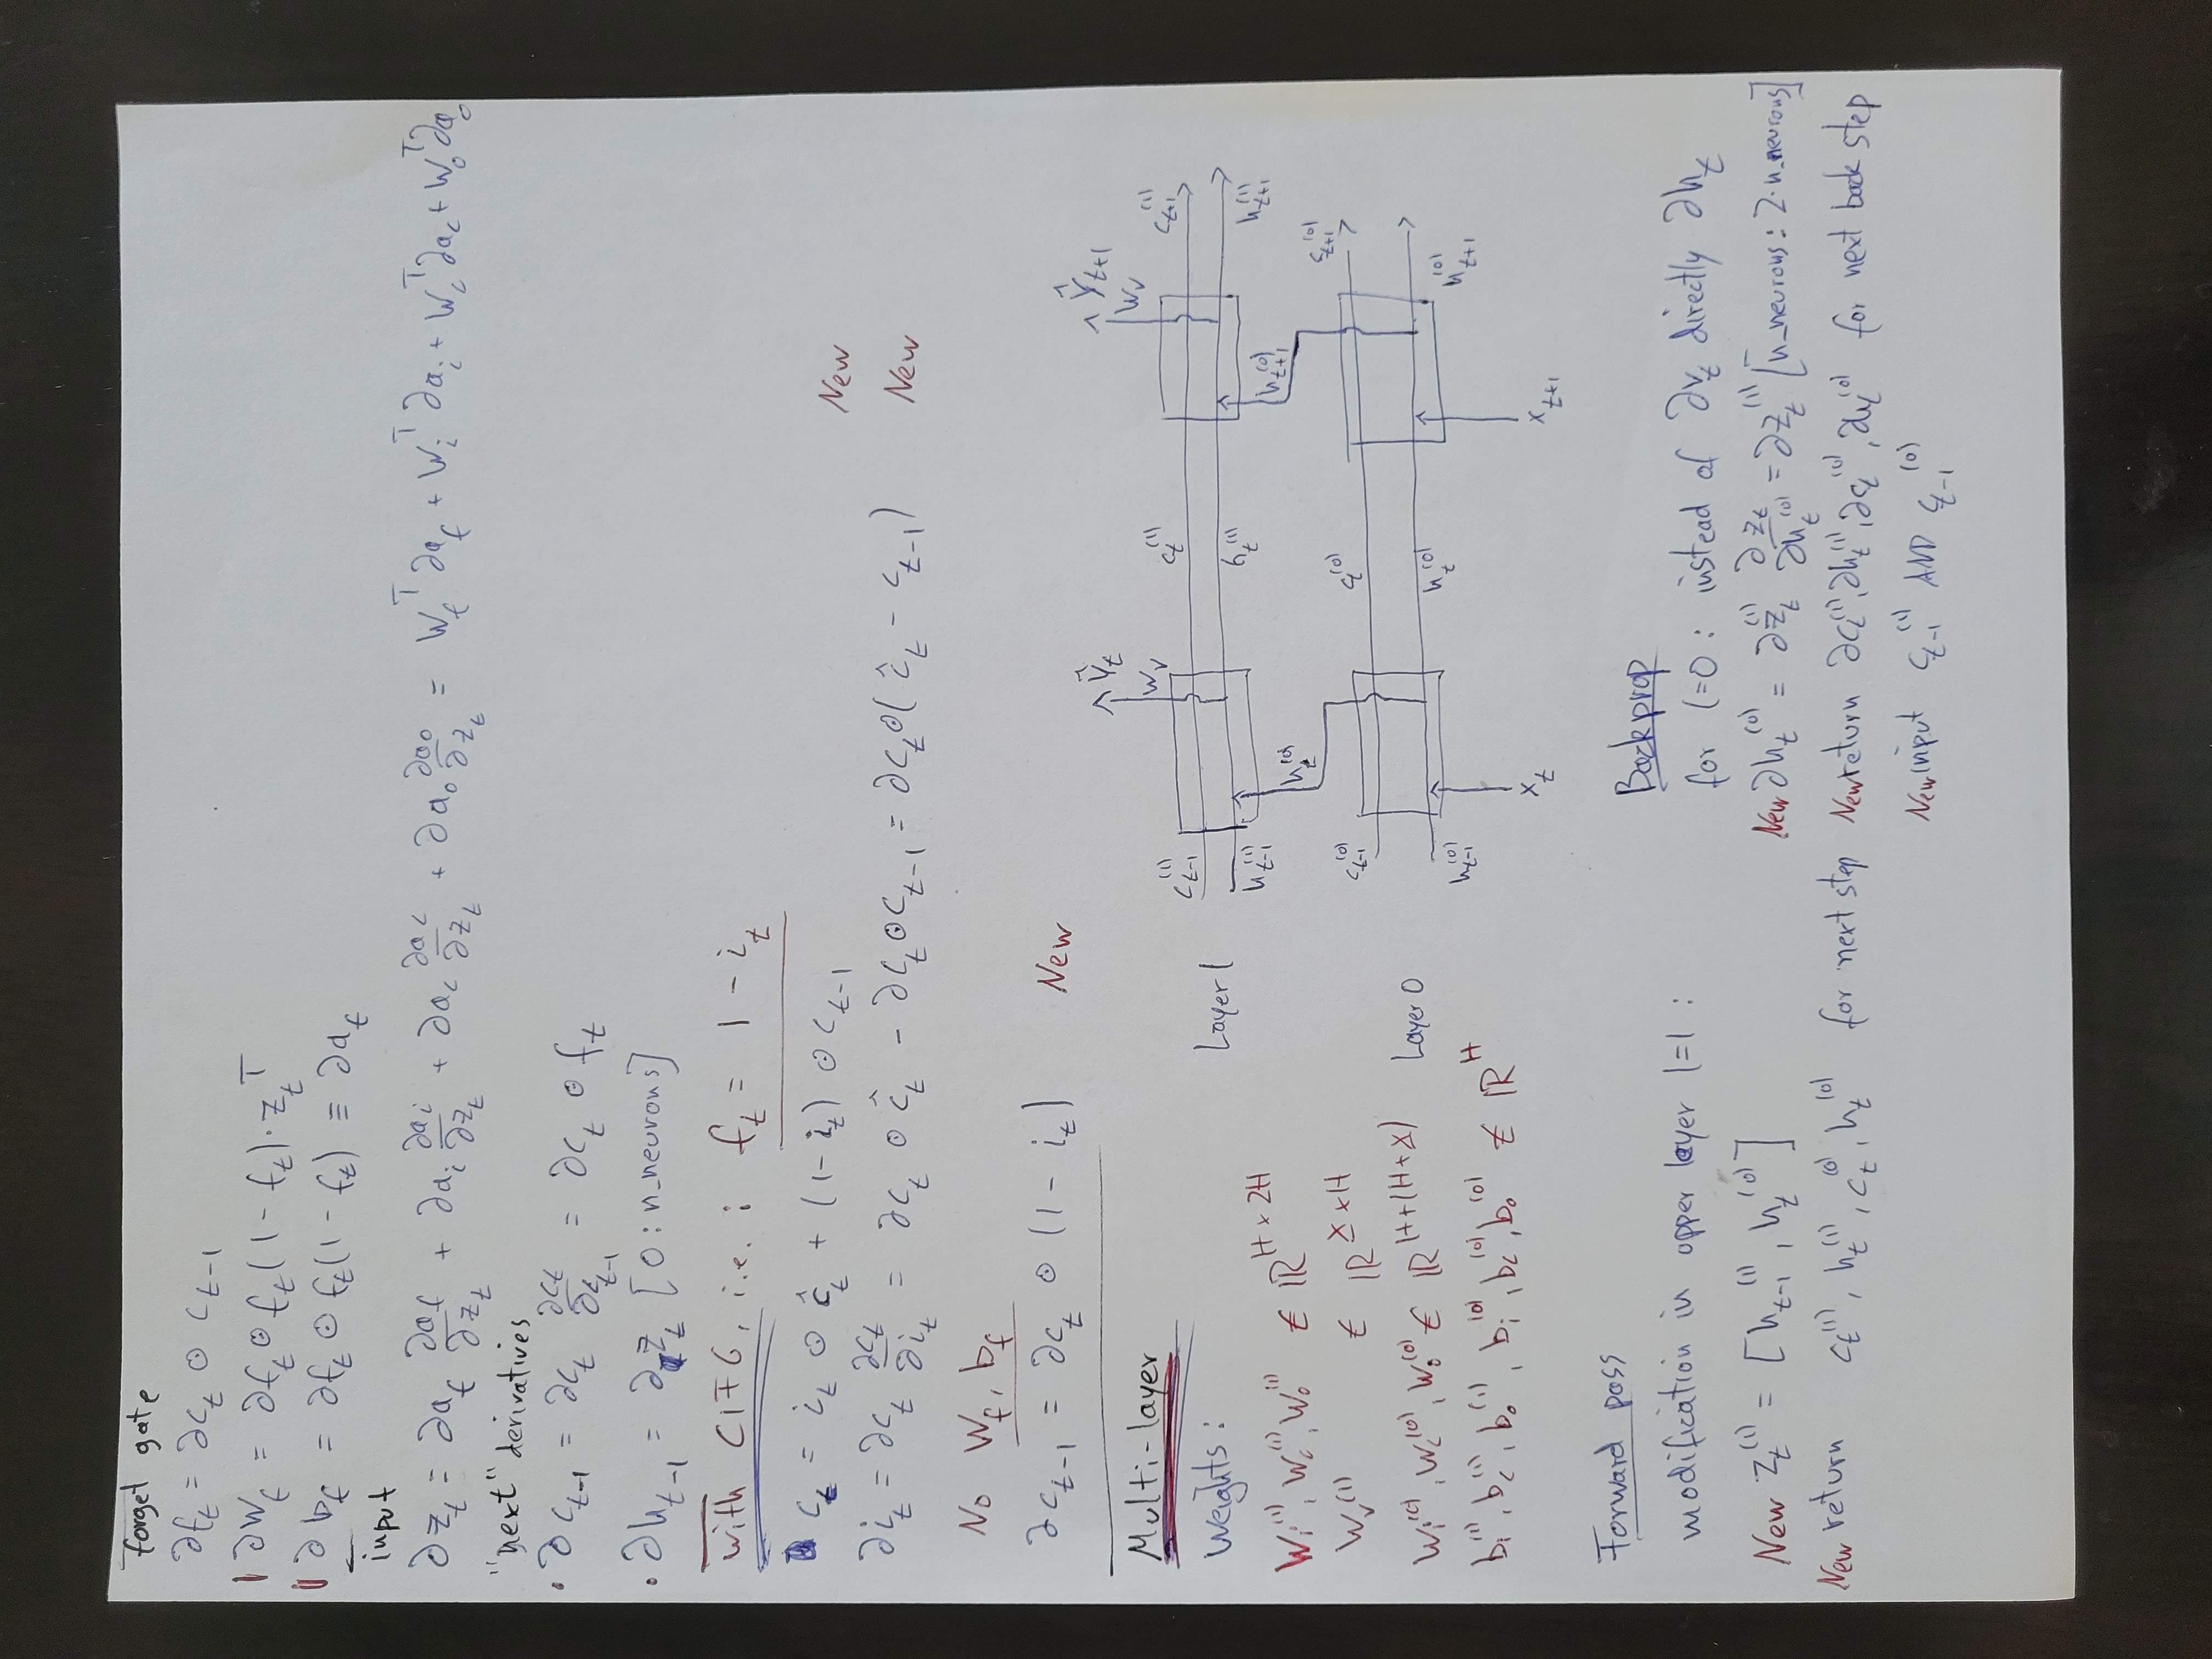 forget gate
∂f_t = ∂c_t ⊙ c_{t-1}
∂W_f = ∂f_t ⊙ f_t(1 - f_t) · z_t^T
∂b_f = ∂f_t ⊙ f_t(1 - f_t) ≡ ∂a_f
input
∂z_t = ∂a_f ∂a_f/∂z_t + ∂a_i ∂a_i/∂z_t + ∂a_c ∂a_c/∂z_t + ∂a_o ∂a_o/∂z_t = W_f^T ∂a_f + W_i^T ∂a_i + W_c^T ∂a_c + W_o^T ∂a_o
"next" derivatives
• ∂c_{t-1} = ∂c_t ∂c_t/∂c_{t-1} = ∂c_t ⊙ f_t
• ∂h_{t-1} = ∂z_t [0 : n_neurons]
with CIFG, i.e. : f_t = 1 - i_t
c_t = i_t ⊙ ĉ_t + (1 - i_t) ⊙ c_{t-1} New
∂i_t = ∂c_t ∂c_t/∂i_t = ∂c_t ⊙ ĉ_t - ∂c_t ⊙ c_{t-1} = ∂c_t ⊙ (ĉ_t - c_{t-1}) New
No W_f, b_f
∂c_{t-1} = ∂c_t ⊙ (1 - i_t) New
Multi-layer
Weights :
W_i^(1), W_c^(1), W_o^(1) ∈ ℝ^{H × 2H}
W_v^(1) ∈ ℝ^{X × H}
W_i^(0), W_c^(0), W_o^(0) ∈ ℝ^{H+(H+X)}
b_i^(1), b_c^(1), b_o^(1), b_i^(0), b_c^(0), b_o^(0) ∈ ℝ^H
Ŷ_t Ŷ_{t+1}
W_v W_v
c_{t-1}^(1) c_t^(1) c_{t+1}^(1)
Layer 1
h_{t-1}^(1) h_t^(1) h_{t+1}^(1)
h_t^(0) h_{t+1}^(0)
c_{t-1}^(0) c_t^(0) c_{t+1}^(0)
Layer 0
h_{t-1}^(0) h_t^(0) h_{t+1}^(0)
x_t x_{t+1}
Forward pass
modification in upper layer l=1 :
New z_t^(1) = [h_{t-1}^(1), h_t^(0)]
New return c_t^(1), h_t^(1), c_t^(0), h_t^(0) for next step
Backprop
for l=0 : instead of ∂v_t directly ∂h_t
New ∂h_t^(0) = ∂z_t^(1) ∂z_t/∂h_t^(0) = ∂z_t^(1) [n_neurons : 2·n_neurons]
New return ∂c_t^(1), ∂h_t^(1), ∂c_t^(0), ∂h_t^(0) for next back step
New input c_{t-1}^(1) AND c_{t-1}^(0)